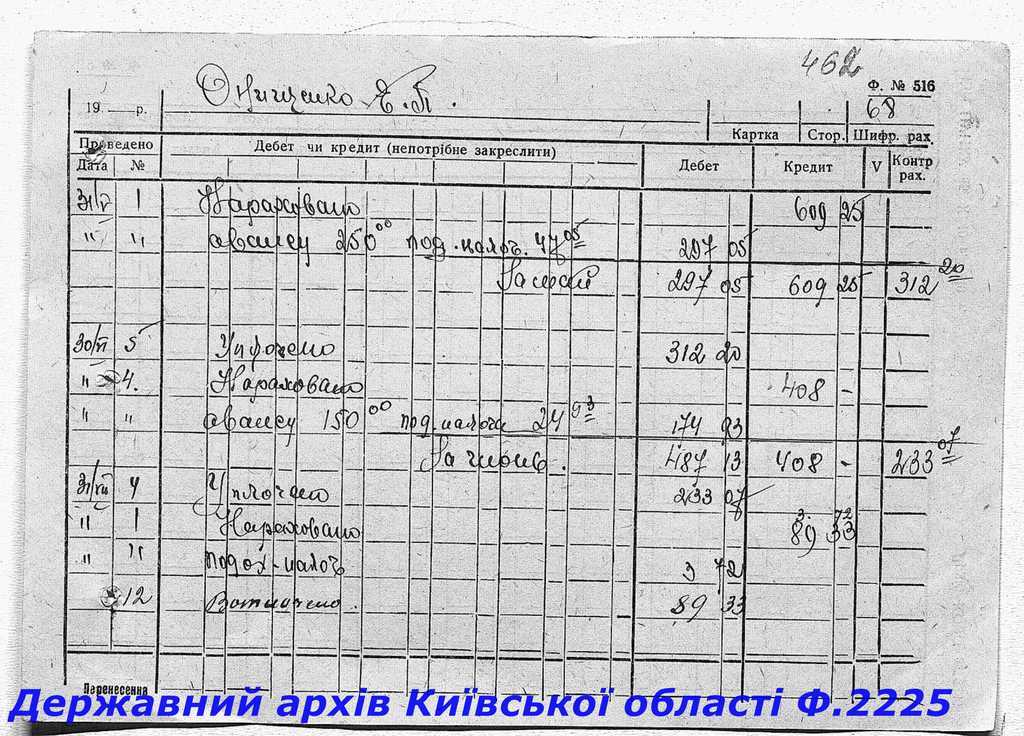 462
Онищенко Є. П.
Ф. № 516
19 — р.
68
Картка Стор. Шифр. рах.
Проведено Дебет чи кредит (непотрібне закреслити) Дебет Кредит V Контр рах.
Дата №
31/V 1 Нараховано 609 25
" " авансу 250 00 под. налог. 47 05 297 05
За май 297 05 609 25 312 20
30/VI 5 Уплочено 312 20
" 4. Нараховано 408 -
" " авансу 150 00 под. налога 24 93 174 93
За июнь. 487 13 408 - 233 07
31/VII 4 Уплочено 233 07
3. 72
" 1 Нараховано 89 33
" " подох. налог 3 72
12 89 33
Перенесення
Державний архів Київської області Ф.2225